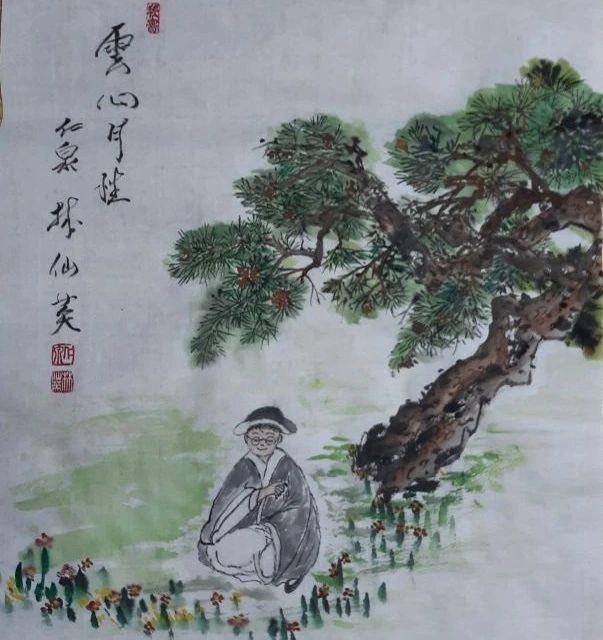 雲心月性
仁泉 林仙英